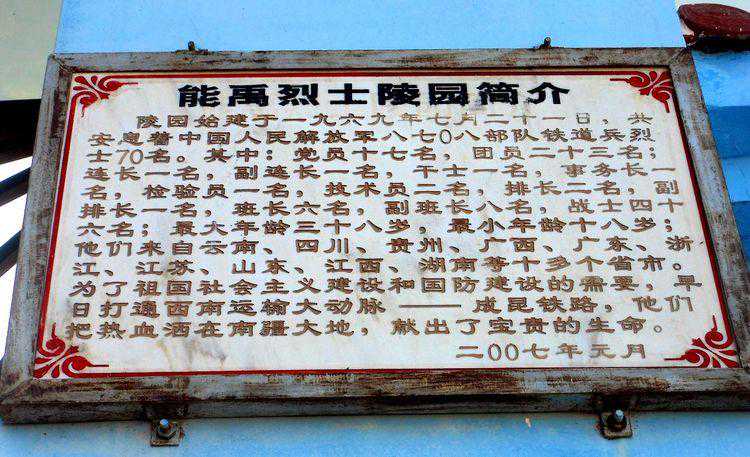 能禹烈士陵园简介
陵园始建于一九六九年七月二十一日，共
安息着中国人民解放军八七〇八部队铁道兵烈
士70名。其中：党员十七名，团员二十三名；
连长一名，副连长一名，干士一名，事务长一
名，检验员一名，技术员二名，排长二名，副
排长一名，班长六名，副班长八名，战士四十
六名；最大年龄三十八岁，最小年龄十八岁；
他们来自云南、四川、贵州、广西、广东、浙
江、江苏、山东、江西、湖南等十多个省市。
为了祖国社会主义建设和国防建设的需要，早
日打通西南运输大动脉——成昆铁路，他们
把热血洒在南疆大地，献出了宝贵的生命。
二〇〇七年元月